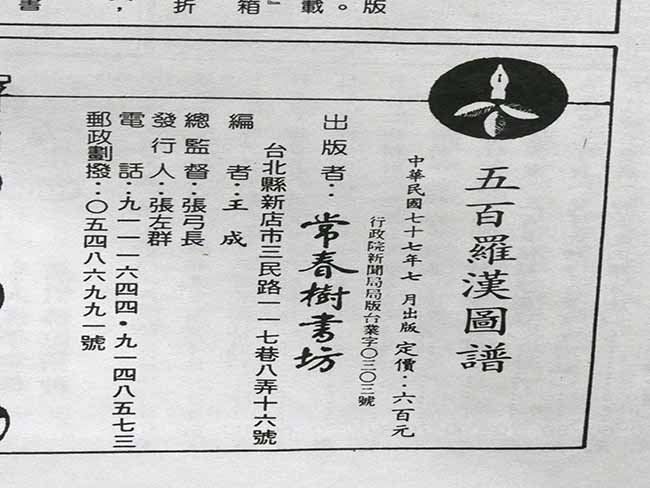 書
折
箱
載。
版
五百羅漢圖譜
中華民國七十七年七 月出版 定價：六百元
行政院新聞局局版台業字〇三〇三號
出版者：常春樹書坊
台北縣新店市三民路一一七巷八弄十六號
編 者：王 成
總監督：張弓長
發行人：張左群
電 話：九一一一六四四・九一四八五七三
郵政劃撥：〇五四八六九九一號